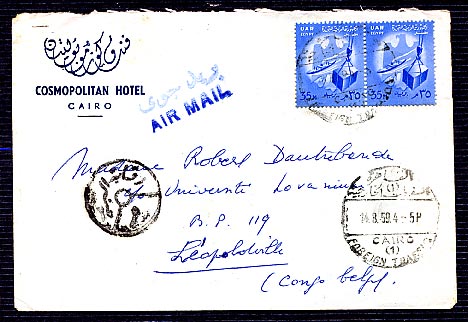 فندق كوزموبوليتان
COSMOPOLITAN HOTEL
CAIRO
بريد جوى
AIR MAIL
UAR
EGYPT
35M ٣٥
UAR
EGYPT
35M ٣٥
Madame Robert Dautrebande
Université Lovanium
B.P. 119
Léopoldville
(Congo belge)
14.8.59.4-5P
CAIRO
(1)
FOREIGN TRAFFIC